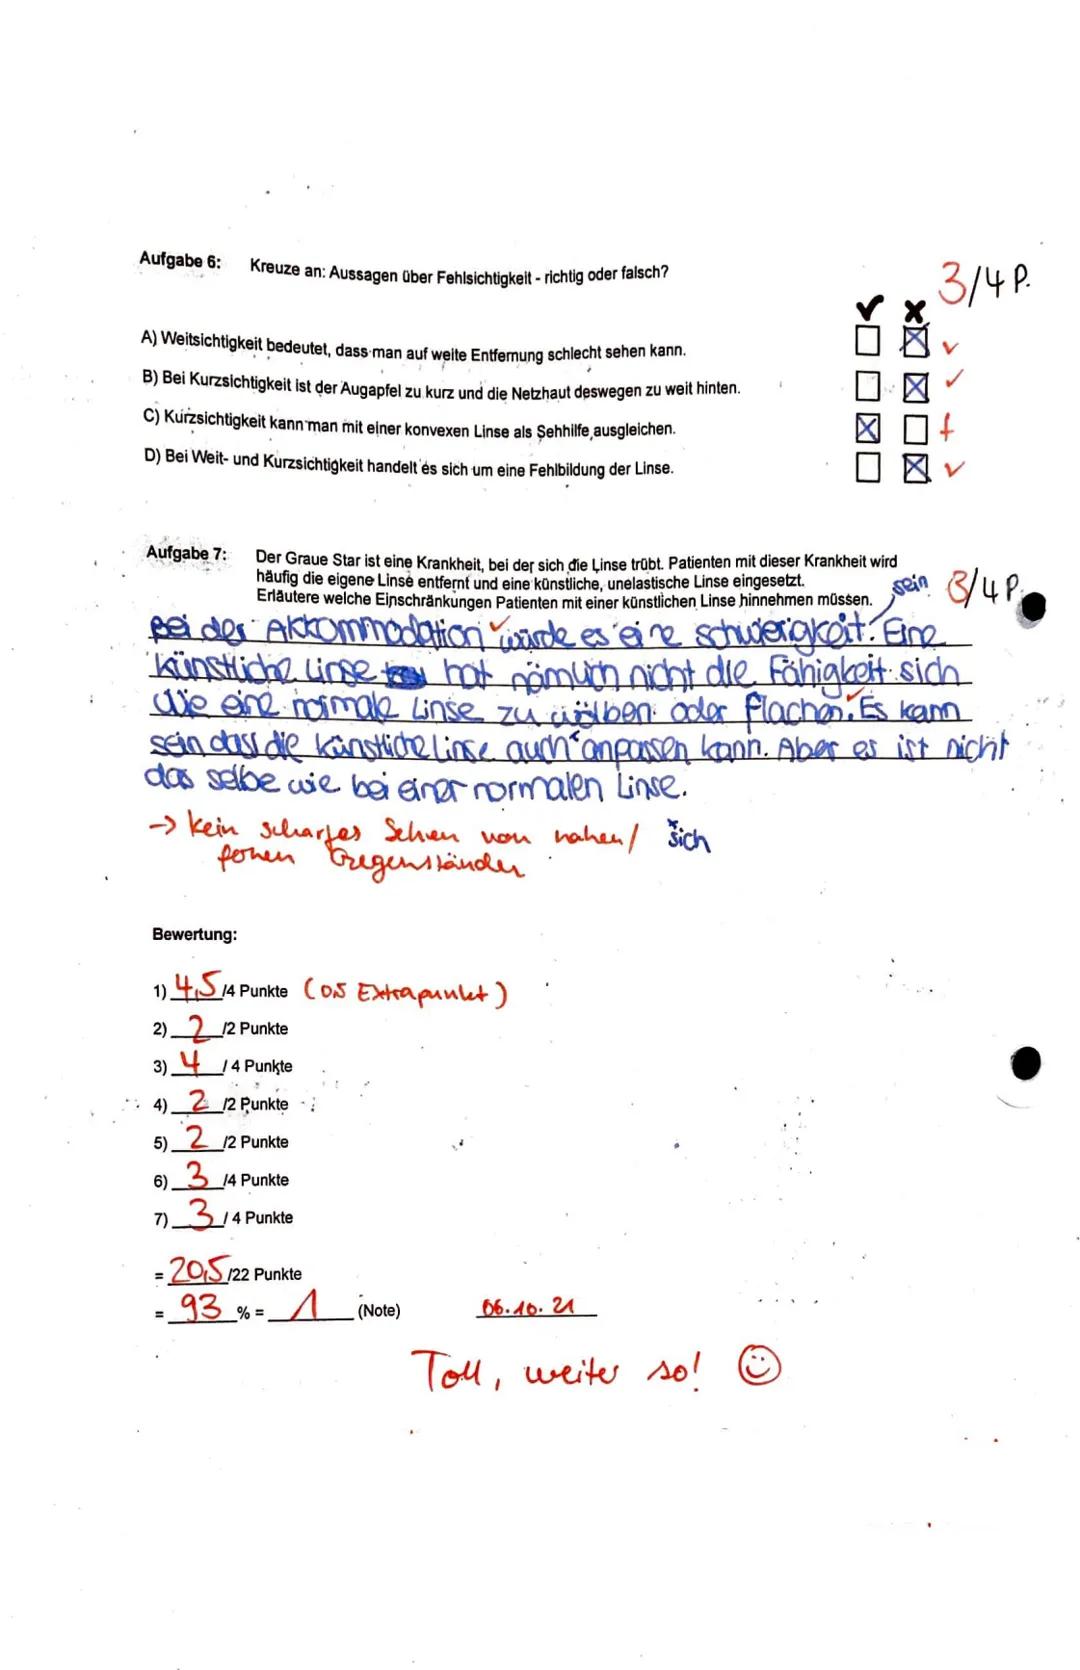 Aufgabe 6: Kreuze an: Aussagen über Fehlsichtigkeit - richtig oder falsch?
3/4 P.
✔ ✗
A) Weitsichtigkeit bedeutet, dass man auf weite Entfernung schlecht sehen kann. ☐ ☒ ✓
B) Bei Kurzsichtigkeit ist der Augapfel zu kurz und die Netzhaut deswegen zu weit hinten. ☐ ☒ ✓
C) Kurzsichtigkeit kann man mit einer konvexen Linse als Sehhilfe ausgleichen. ☒ ☐ f
D) Bei Weit- und Kurzsichtigkeit handelt es sich um eine Fehlbildung der Linse. ☐ ☒ ✓
Aufgabe 7: Der Graue Star ist eine Krankheit, bei der sich die Linse trübt. Patienten mit dieser Krankheit wird
häufig die eigene Linse entfernt und eine künstliche, unelastische Linse eingesetzt.
Erläutere welche Einschränkungen Patienten mit einer künstlichen Linse hinnehmen müssen.
sein 3/4 P.
Bei der Akkommodation ✓ würde es eine schwierigkeit. Eine
künstliche Linse hat nämlich nicht die Fähigkeit sich
wie eine normale Linse zu wölben oder flachen. ✓ Es kann
sein dass die künstliche Linse auch * anpassen kann. Aber es ist nicht
das selbe wie bei einer normalen Linse.
-> kein scharfes Sehen von nahen/ * sich
fernen Gegenständen
Bewertung:
1) 4,5 /4 Punkte (0,5 Extrapunkt)
2) 2 /2 Punkte
3) 4 / 4 Punkte
4) 2 /2 Punkte
5) 2 /2 Punkte
6) 3 /4 Punkte
7) 3 / 4 Punkte
= 20,5 /22 Punkte
= 93 % = 1 (Note) 06.10.21
Toll, weiter so! ☺